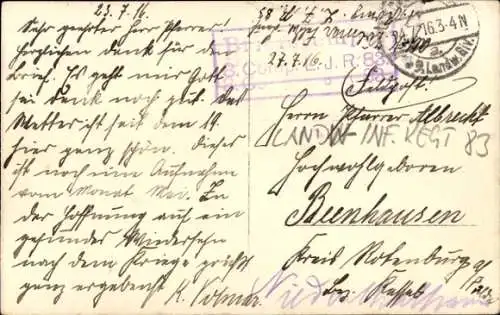 23.7.16.
Sehr geehrter Herr Pfarrer!
Herzlichen Dank für den
Brief. Es geht mir Gott
sei Dank noch gut. Das
Wetter ist seit dem 19.
hier ganz schön. Dieses
ist noch eine Aufnahme
vom Monat Mai. In
der Hoffnung auf ein
gesundes Wiedersehn
nach dem Kriege grüßt
ganz ergebenst
K. Volmar
3. Comp. L. J. R. 83
27.7.16
16.3-4N
Feldpost.
Herrn Pfarrer Albrecht
LANDW INF. REGT 83
Hochwohlgeboren
Beenhausen
Kreis Rotenburg a/
Bez. Kassel